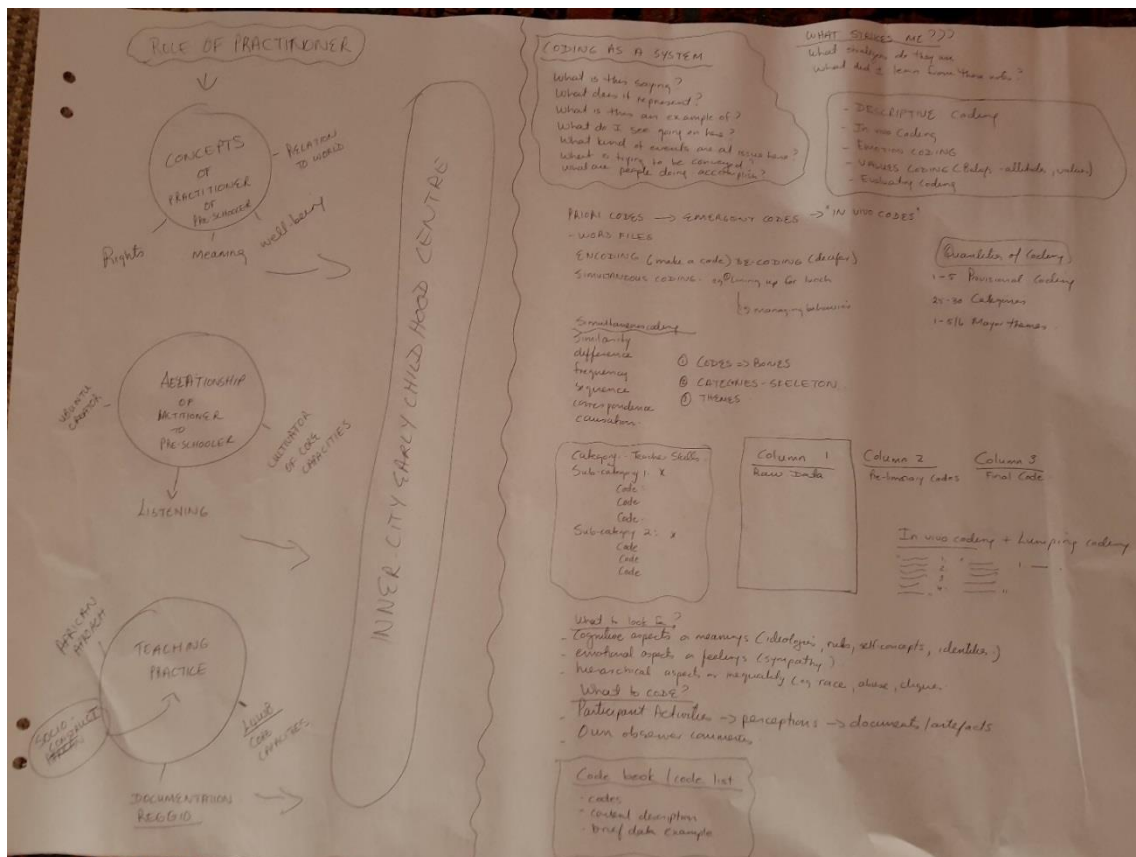 ROLE OF PRACTITIONER
CONCEPTS
OF
PRACTITIONER
OF
PRE-SCHOOLER
RELATION
TO WORLD
Rights
Meaning
well-being
RELATIONSHIP
OF
TO
PRE-SCHOOLER
UBUNTU
CULTIVATOR
OF CORE
CAPACITIES
LISTENING
AFRICAN
TEACHING
PRACTICE
SOCIO
CONSTRUCT
CORE
CAPACITIES
DOCUMENTATION
REGGIO
INNER-CITY EARLY CHILDHOOD CENTRE
CODING AS A SYSTEM
What is this saying?
What does it represent?
What is this an example of?
What do I see going on here?
What kind of events are at issue here?
What is trying to be conveyed?
What are people doing accomplish?
WHAT STRIKES ME???
What strategies do they use
What did I learn from these notes?
- DESCRIPTIVE Coding
- In vivo Coding
- EMOTION CODING
- VALUES CODING (Beliefs - attitudes, values)
- Evaluating Coding
PRIORI CODES → EMERGENT CODES → "IN VIVO CODES"
- WORD FILES
ENCODING (make a code) DECODING (decipher)
SIMULTANEOUS CODING - eg lining up for lunch
managing behaviour
Quantities of Coding
1-5 Provisional Coding
25-30 Categories
1-5/6 Major Themes
Simultaneous coding
Similarity
difference
frequency
sequence
correspondence
causation
① CODES => BONES
② CATEGORIES - SKELETON
③ THEMES
Category - Teacher Skills
Sub-category 1: x
Code
Code
Code
Sub-category 2: x
Code
Code
Code
Column 1
Raw Data
Column 2
Column 3
Final Code
In vivo coding + Lumping coding
1.
2
3
4.
1.
What to look for?
- Cognitive aspects or meanings (ideologies, rules, self-concepts, identities)
- emotional aspects or feelings (sympathy)
- hierarchical aspects or inequality (eg race, abuse, cliques
What to code?
- Participant Activities → perceptions → documents/artefacts
- Own observer comments
Code book / code list
- codes
- content description
- brief data example